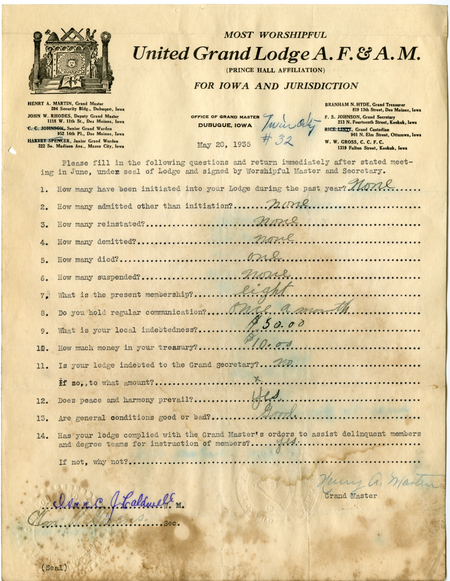 MOST WORSHIPFUL
United Grand Lodge A. F. & A. M.
(PRINCE HALL AFFILIATION)
FOR IOWA AND JURISDICTION
HENRY A. MARTIN, Grand Master
204 Security Bldg., Dubuque, Iowa
JOHN W. RHODES, Deputy Grand Master
1118 W. 11th St., Des Moines, Iowa
C. C. JOHNSON, Senior Grand Warden
952 16th Pl., Des Moines, Iowa
HARRY SPENCER, Junior Grand Warden
222 So. Madison Ave., Mason City, Iowa
OFFICE OF GRAND MASTER
DUBUQUE, IOWA
Twin City
#32
BRANHAM N. HYDE, Grand Treasurer
819 13th Street, Des Moines, Iowa
F. S. JOHNSON, Grand Secretary
213 N. Fourteenth Street, Keokuk, Iowa
RICE LENTZ, Grand Custodian
941 N. Elm Street, Ottumwa, Iowa
W. W. GROSS, C. C. F. C.
1218 Fulton Street, Keokuk, Iowa
May 20, 1935
Please fill in the following questions and return immediately after stated meet-
ing in June, under seal of Lodge and signed by Worshipful Master and Secretary.
1. How many have been initiated into your Lodge during the past year? None
2. How many admitted other than initiation? none
3. How many reinstated? none
4. How many demitted? none
5. How many died? one
6. How many suspended? none
7. What is the present membership? eight
8. Do you hold regular communication? once a month
9. What is your local indebtedness? $50.00
10. How much money in your treasury? $10.00
11. Is your lodge indebted to the Grand secretary? no
if so, to what amount? x
12. Does peace and harmony prevail? yes
13. Are general conditions good or bad? Good
14. Has your lodge complied with the Grand Master's orders to assist delinquent members
and degree teams for instruction of members? yes
If not, why not?
Henry A. Martin
Grand Master
J. Caldwell W. M.
Sec.
(Seal)